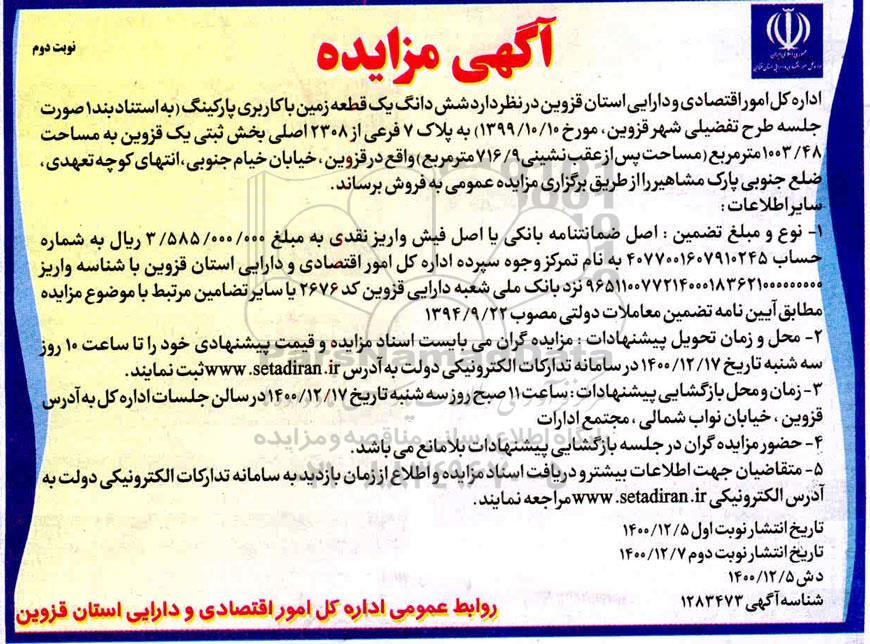 آگهی مزایده
نوبت دوم
جمهوری اسلامی ایران
اداره کل امور اقتصادی و دارایی استان قزوین در نظر دارد شش دانگ یک قطعه زمین با کاربری پارکینگ (به استناد بند ۱ صورت
جلسه طرح تفضیلی شهر قزوین ، مورخ ۱۳۹۹/۱۰/۱۰) به پلاک ۷ فرعی از ۲۳۰۸ اصلی بخش ثبتی یک قزوین به مساحت
۱۰۰۳/۴۸ مترمربع (مساحت پس از عقب نشینی ۷۱۶/۹ مترمربع) واقع در قزوین ، خیابان خیام جنوبی، انتهای کوچه تعهدی،
ضلع جنوبی پارک مشاهیر را از طریق برگزاری مزایده عمومی به فروش برساند.
سایر اطلاعات :
۱- نوع و مبلغ تضمین : اصل ضمانتنامه بانکی یا اصل فیش واریز نقدی به مبلغ ۳/۵۸۵/۰۰۰/۰۰۰ ریال به شماره
حساب ۴۰۷۷۰۰۱۶۰۷۹۱۰۲۴۵ به نام تمرکز وجوه سپرده اداره کل امور اقتصادی و دارایی استان قزوین با شناسه واریز
۹۶۵۱۱۰۰۷۷۲۱۴۰۰۰۱۸۳۶۲۱۰۰۰۰۰۰۰۰ نزد بانک ملی شعبه دارایی قزوین کد ۲۶۷۶ یا سایر تضامین مرتبط با موضوع مزایده
مطابق آیین نامه تضمین معاملات دولتی مصوب ۱۳۹۴/۹/۲۲
۲- محل و زمان تحویل پیشنهادات : مزایده گران می بایست اسناد مزایده و قیمت پیشنهادی خود را تا ساعت ۱۰ روز
سه شنبه تاریخ ۱۴۰۰/۱۲/۱۷ در سامانه تدارکات الکترونیکی دولت به آدرس www.setadiran.ir ثبت نمایند.
۳- زمان و محل بازگشایی پیشنهادات : ساعت ۱۱ صبح روز سه شنبه تاریخ ۱۴۰۰/۱۲/۱۷ در سالن جلسات اداره کل به آدرس
قزوین ، خیابان نواب شمالی ، مجتمع ادارات
۴- حضور مزایده گران در جلسه بازگشایی پیشنهادات بلامانع می باشد.
۵- متقاضیان جهت اطلاعات بیشتر و دریافت اسناد مزایده و اطلاع از زمان بازدید به سامانه تدارکات الکترونیکی دولت به
آدرس الکترونیکی www.setadiran.ir مراجعه نمایند.
تاریخ انتشار نوبت اول ۱۴۰۰/۱۲/۵
تاریخ انتشار نوبت دوم ۱۴۰۰/۱۲/۷
دش ۱۴۰۰/۱۲/۵
شناسه آگهی ۱۲۸۳۴۷۳
روابط عمومی اداره کل امور اقتصادی و دارایی استان قزوین
ParsNamadData
پایگاه اطلاع رسانی مناقصه و مزایده